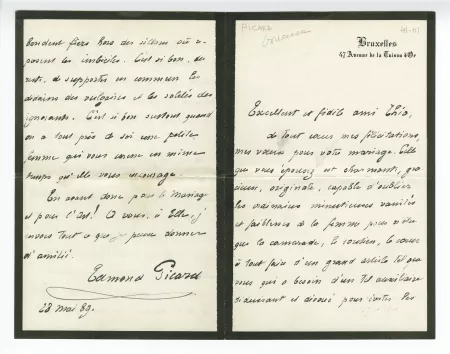 PICARD
Bruxelles
47 Avenue de la Toison d'Or
Excellent et fidèle ami Théo,
de tout cœur mes félicitations,
mes vœux pour votre mariage. Celle
que vous épousez est charmante, gra
cieuse, originale, capable d'oublier
les ordinaires minutieuses vanités
et faiblesses de la femme pour n'être
que la camarade, le soutien, la sœur
à tout faire d'un grand artiste tel que
vous qui a besoin d'un tel auxiliaire
et dévoué pour
fiers hors des où
les imbéciles. C'est si bon, du
reste, de supporter en commun les
dédains des vulgaires et les des
ignorants. C'est si bon surtout quand
on a tout près de soi une petite
femme qui vous en même
temps qu'elle vous encourage.
En avant donc pour le mariage
et pour l'Art! A vous, à Elle, j'
envoie tout ce que je peux donner
d'amitié.
Edmond Picard
28 mai 89.